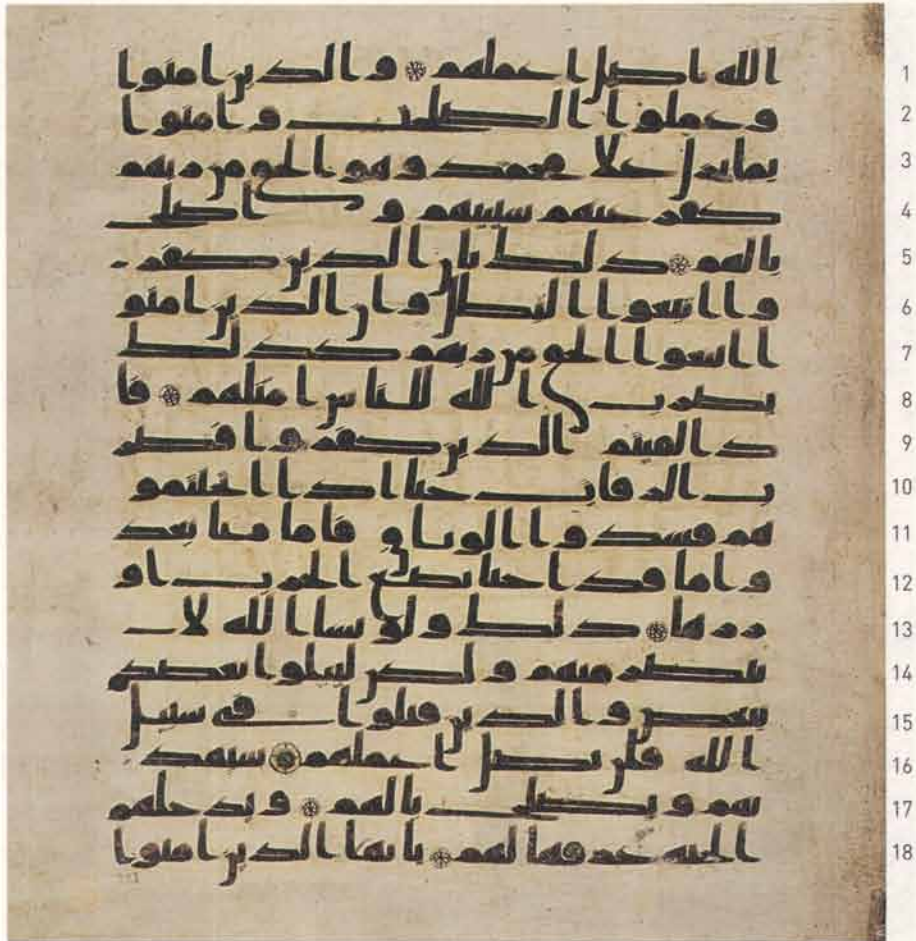 الله اضل اعملهم والذين امنوا 1
وعملوا الصلحت وامنوا 2
بما نزل علا محمد وهو الحق من ربهم 3
كفر عنهم سييتهم واصلح 4
بالهم ذلك بان الذين كفر 5
وا اتبعوا البطل وان الذين امنو 6
ا اتبعوا الحق من ربهم كذلك 7
يضرب الله للناس امثلهم فا 8
ذا لقيتم الذين كفروا فضر 9
ب الرقاب حتا اذا اثخنتمو 10
هم فشدوا الوثاق فاما منا بعد 11
واما فدا حتا تضع الحرب او 12
زرها ذلك ولو يشا الله لا 13
نتصر منهم ولكن ليبلوا بعضكم 14
ببعض والذين قتلوا في سبيل 15
الله فلن يضل اعملهم سيهد 16
يهم ويصلح بالهم ويدخلهم 17
الجنه عرفها لهم يايها الذين امنوا 18